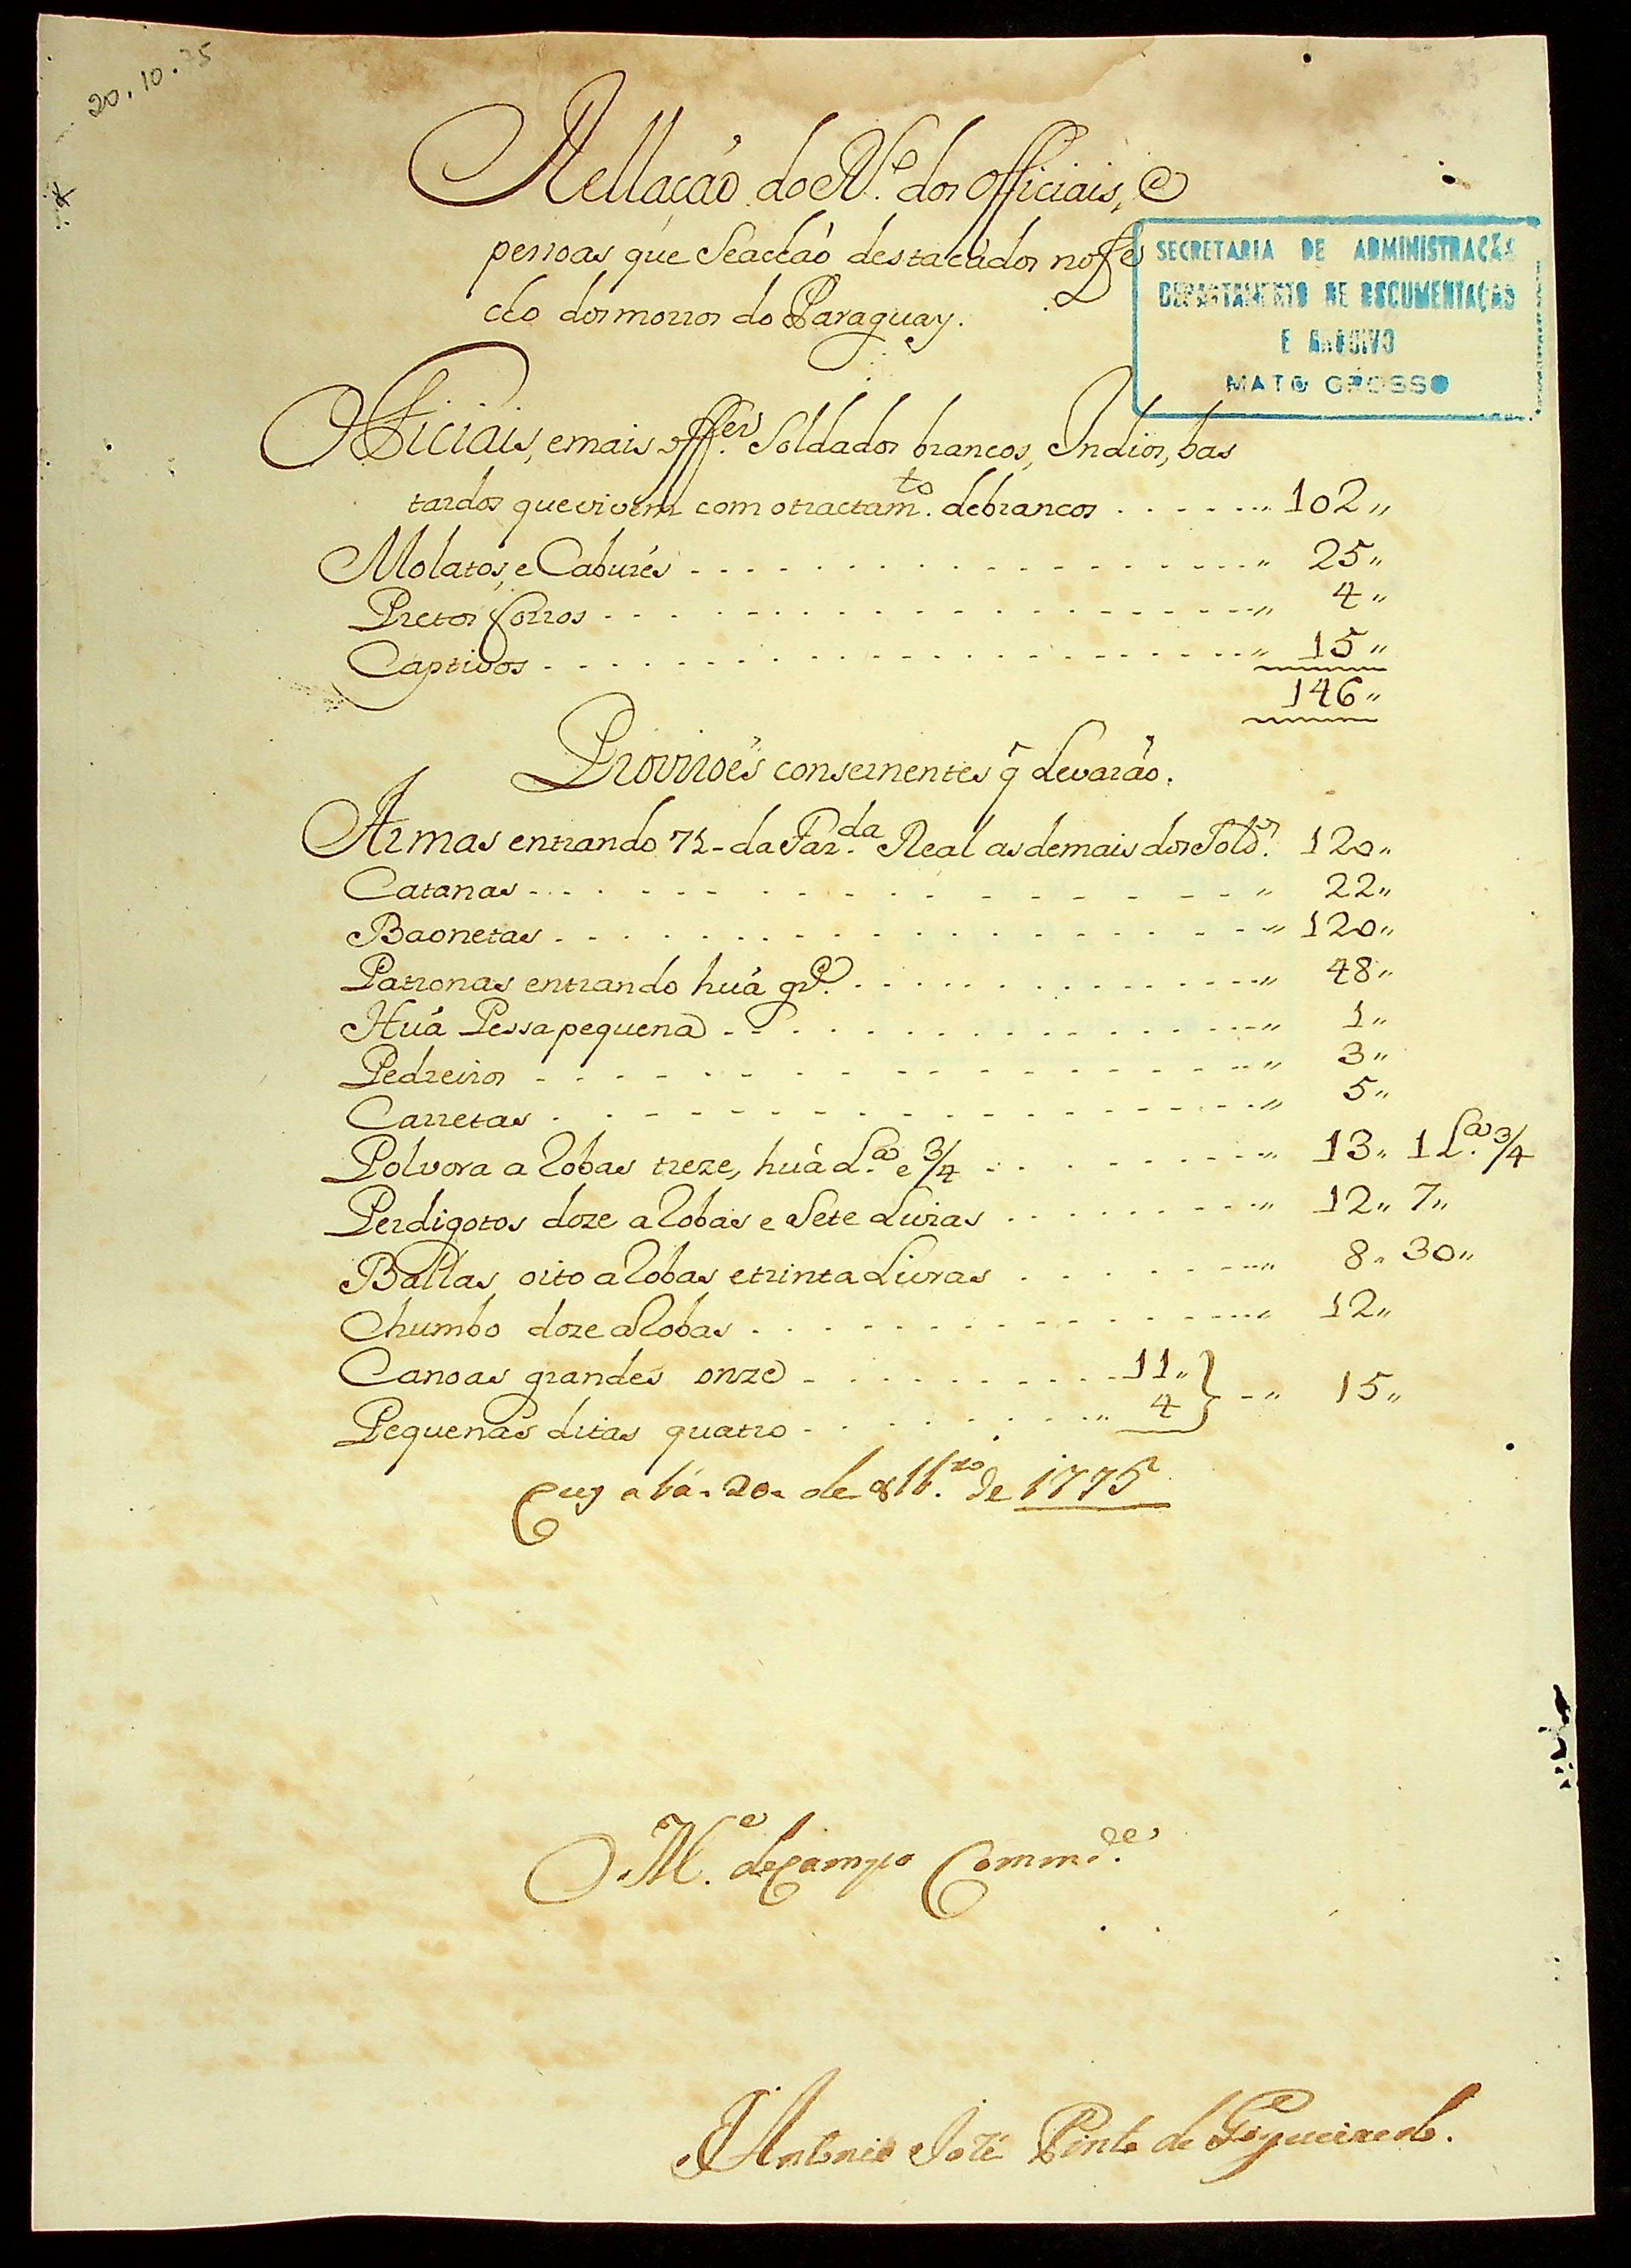 20.10.75
Rellação do N.º dos officiais, e
pessoas que Seachão destacados no Fe
cho dos morros do Paraguay.
SECRETARIA DE ADMINISTRAÇÃO
DEPARTAMENTO DE DOCUMENTAÇÃO
E ARQUIVO
MATO GROSSO
Officiais, e mais off.es Soldados brancos, Indios, bas
tardos que vivem com o tractam.to de brancos 102
Molatos, e Caburés 25
Pretos forros 4
Captivos 15
146
Provisoẽs consernentes q̃ Levarão.
Armas entrando 72 - da Faz.da Real as demais dos Sold.os 120
Catanas 22
Baonetas 120
Patronas entrando huá gr.e 48
Huá Pessa pequena 1
Pedreiros 3
Carretas 5
Polvora aRobas treze, huá L.a e 3/4 13 1 L.a 3/4
Perdigotos doze aRobas e Sete Livras 12 7
Ballas, oito aRobas, e trinta Livras 8 30
Chumbo doze aRobas 12
Canoas grandes onze 11 } 15
Pequenas ditas quatro 4
Cuyabá 20 de 8br.o de 1775
O M.e de Campo Comm.de
Antonio José Pinto de Figueiredo.